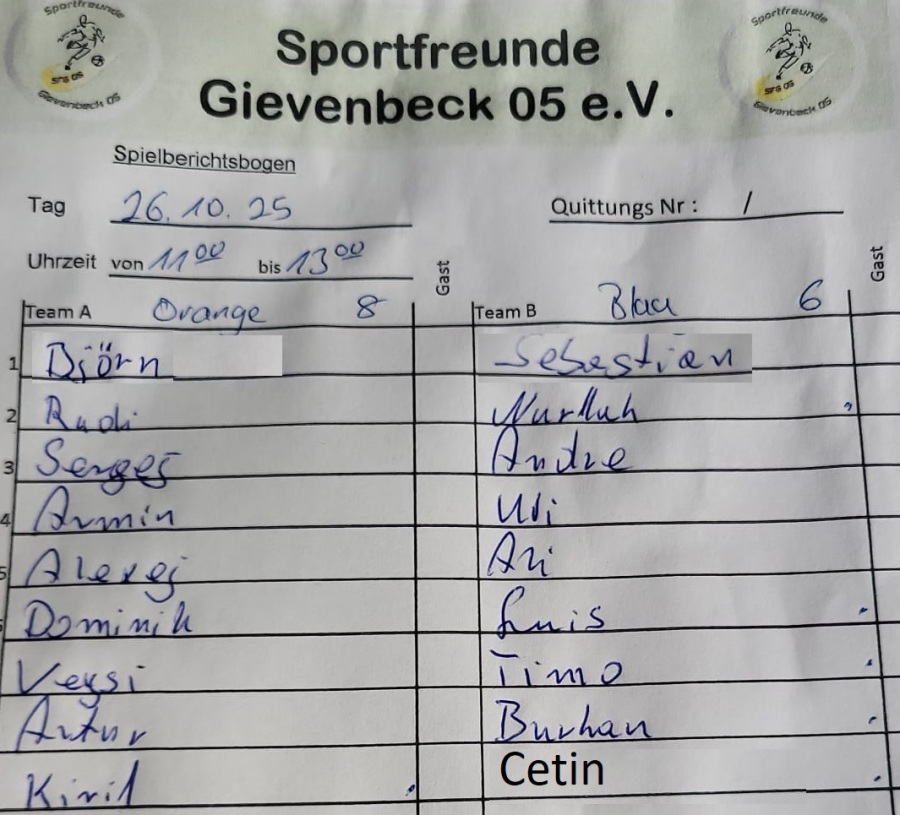 Sportfreunde
SFS 05
Gievenbeck 05
Sportfreunde
Gievenbeck 05 e.V.
Sportfreunde
SFS 05
Gievenbeck 05
Spielberichtsbogen
Tag 26.10.25 Quittungs Nr : /
Uhrzeit von 11 00 bis 13 00 Gast Gast
Team A Orange 8 Team B Blau 6
1 Björn Sebastian
2 Rudi Nurlluh
3 Serges Andre
4 Armin Uli
5 Alexej Ali
Dominik Luis
Veysi Timo
Artur Burhan
Kiril Cetin